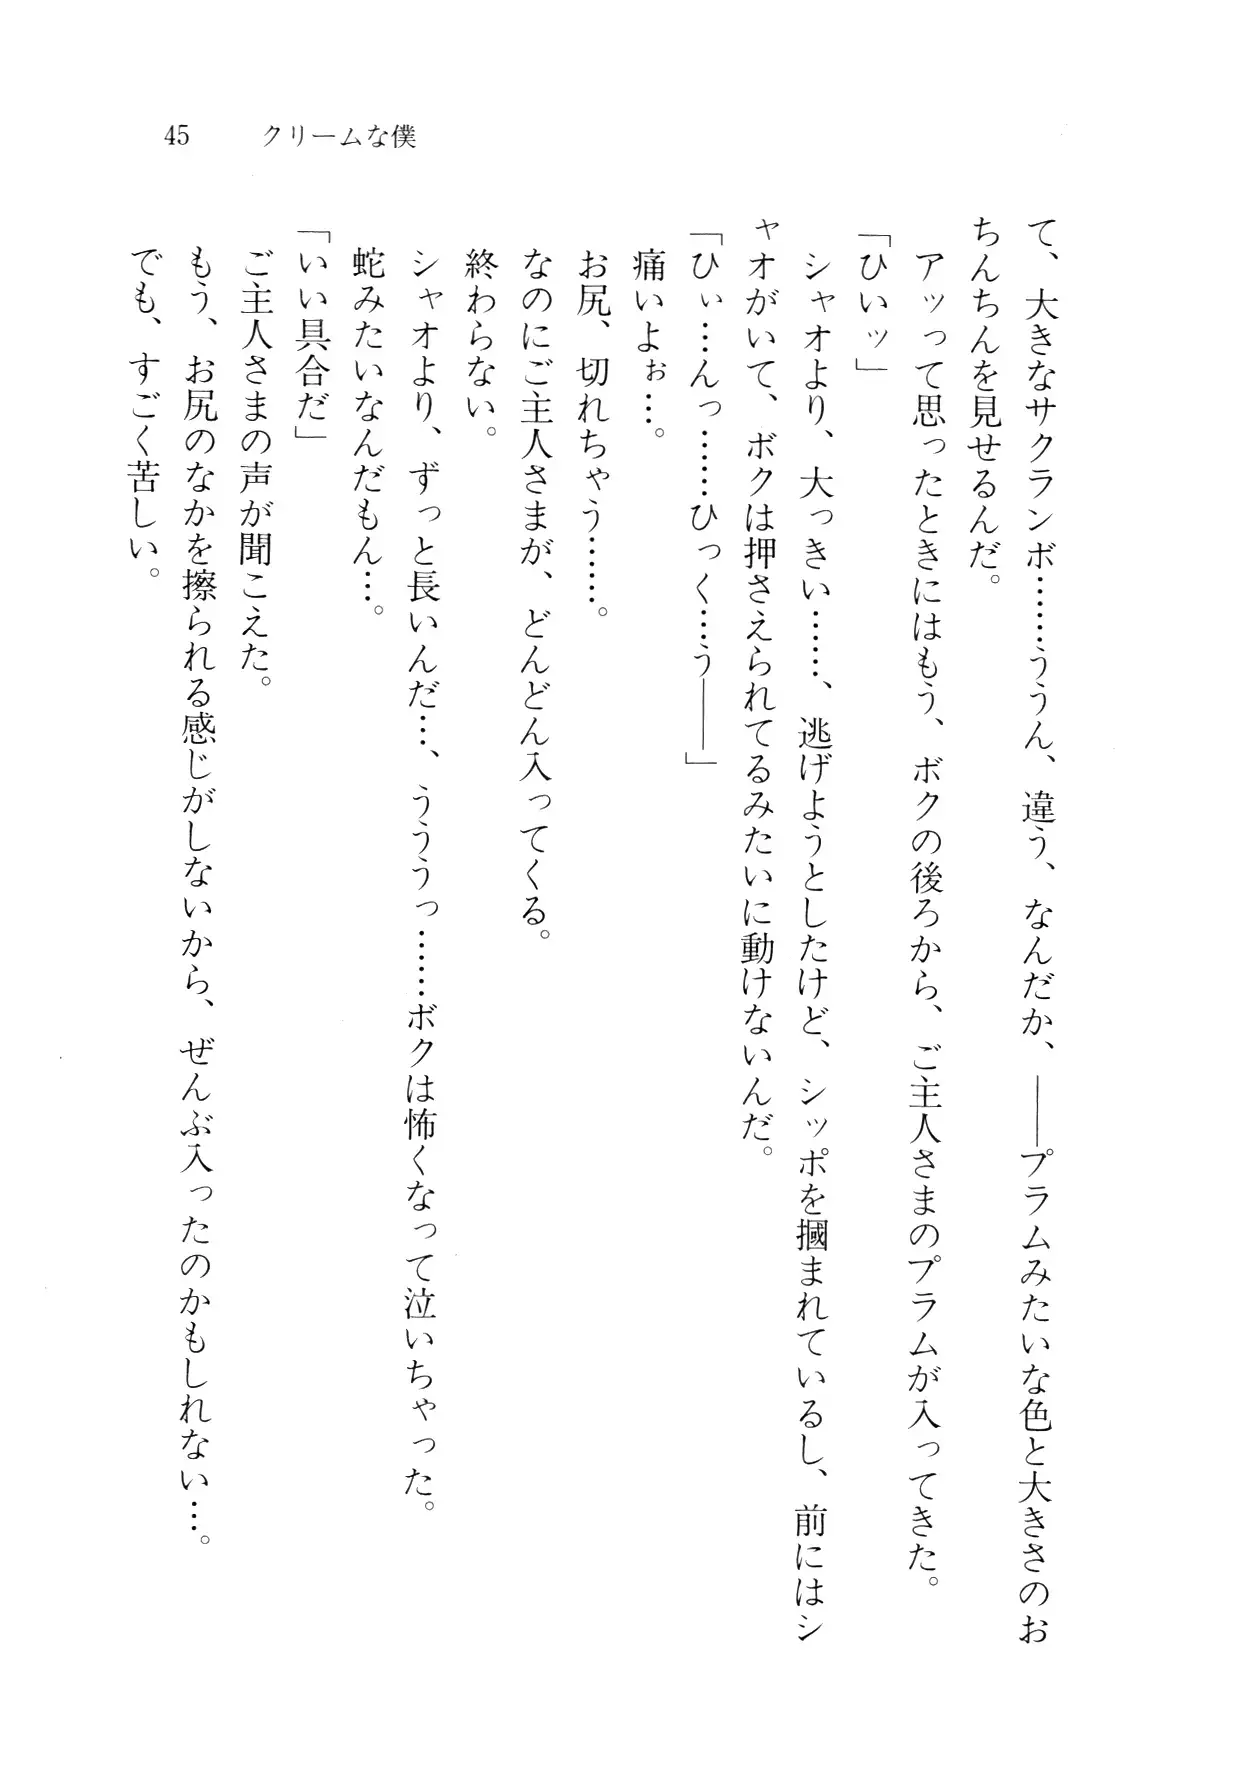 45　クリームな僕
て、大きなサクランボ……ううん、違う、なんだか、――プラムみたいな色と大きさのお
ちんちんを見せるんだ。
アッって思ったときにはもう、ボクの後ろから、ご主人さまのプラムが入ってきた。
「ひいッ」
シャオより、大っきい……、逃げようとしたけど、シッポを摑まれているし、前にはシ
ャオがいて、ボクは押さえられてるみたいに動けないんだ。
「ひぃ…んっ……ひっく…う――」
痛いよぉ…。
お尻、切れちゃう……。
なのにご主人さまが、どんどん入ってくる。
終わらない。
シャオより、ずっと長いんだ…、うううっ……ボクは怖くなって泣いちゃった。
蛇みたいなんだもん…。
「いい具合だ」
ご主人さまの声が聞こえた。
もう、お尻のなかを擦られる感じがしないから、ぜんぶ入ったのかもしれない…。
でも、すごく苦しい。